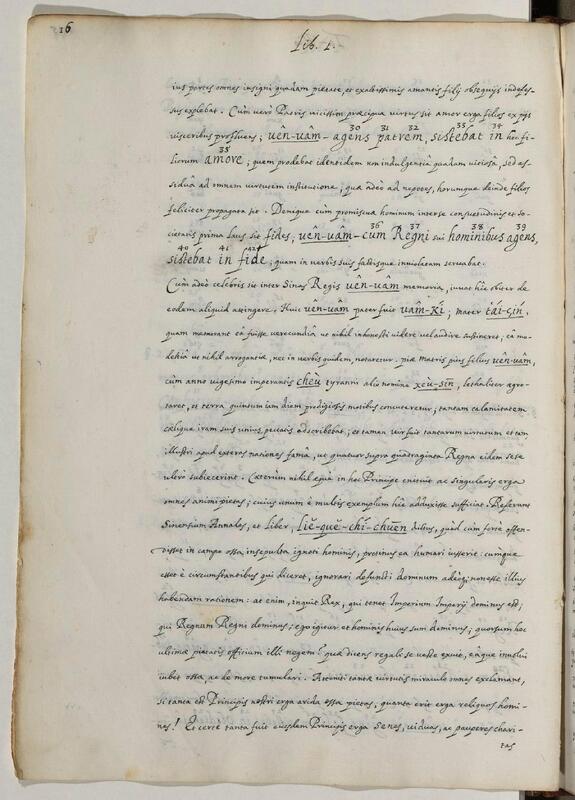 16
Lib. 1.
ius partes omnes insigni quadam pietate, et exactissimis amantis filij obsequijs indefes-
sus explebat. Cùm verò Patris vicissim præcipua virtus sit amor erga filios ex pijs
visceribus profluens; uên-uâm- agens 30 patrem 31, 32 sistebat 33 in 34 hoc fi-
liorum amore 35; quem prodebat identidem non indulgentiâ quadam vitiosa, sed as-
sidua ad omnem virtutem institutione; quæ adeò ad nepotes, horumque deinde filios
feliciter propagata sit. Denique cùm promiscuæ hominum inter se consuetudinis et so-
cietatis prima laus sit fides, uên-uâm- cum 36 Regni 37 sui hominibus 38 agens 39,
sistebat 40 in 41 fide 42; quam in verbis suis factisque inviolatam servabat.
Cùm adeò celebris sit inter Sinas Regis uên-uâm memoria, iuvat hîc obiter de
eodem aliquid attingere. Huic uên-uâm pater fuit uâm-kí; mater tái-gín,
quam memorant eâ fuisse verecundiâ ut nihil inhonesti videre vel audire sustineret; eâ mo-
destiâ ut nihil arrogantiæ, nec in verbis quidem, notaretur. piæ matris pius filius uên-uâm,
cùm anno vigesimo imperantis cheù tyranni alio nomine xeù-sin, lethaliter ægro-
taret, et terra quintum iam diem prodigiosis motibus concuteretur; tantam calamitatem
cælique iram suis unius peccatis adscribebat; et tamen vir fuit tantarum virtutum et tam
illustri apud externas nationes famâ, ut quatuor supra quadraginta Regna eidem sese
ultro subiecerint. Cæterùm nihil æquè in hoc Principe enituit ac singularis erga
omnes animi pietas; cuius unum è multis exemplum hîc adduxisse sufficiat. Referunt
Sinensium Annales, et liber, liĕ-quĕ-chí-chuēn dictus, quòd cùm fortè offen-
disset in campo ossa insepulta ignoti hominis, protinus ea humari iusserit: cùmque
esset è circumstantibus qui diceret, ignorari defuncti dominum adeòque non esse illius
habendam rationem: at enim, inquit Rex, qui tenet Imperium Imperij dominus est;
qui Regnum Regni dominus; ego igitur et hominis huius sum dominus; quorsum hoc
ultimæ pietatis officium illi negem? quæ dicens regali se veste exuit, eâque involvi
iubet ossa, ac de more tumulari. Attoniti tantæ virtutis miraculo omnes exclamant,
si tanta est Principis nostri erga arida ossa pietas, quanta erit erga reliquos homi-
nes! Et certè tanta fuit eiusdem Principis erga senes, viduas, ac pauperes chari-
tas